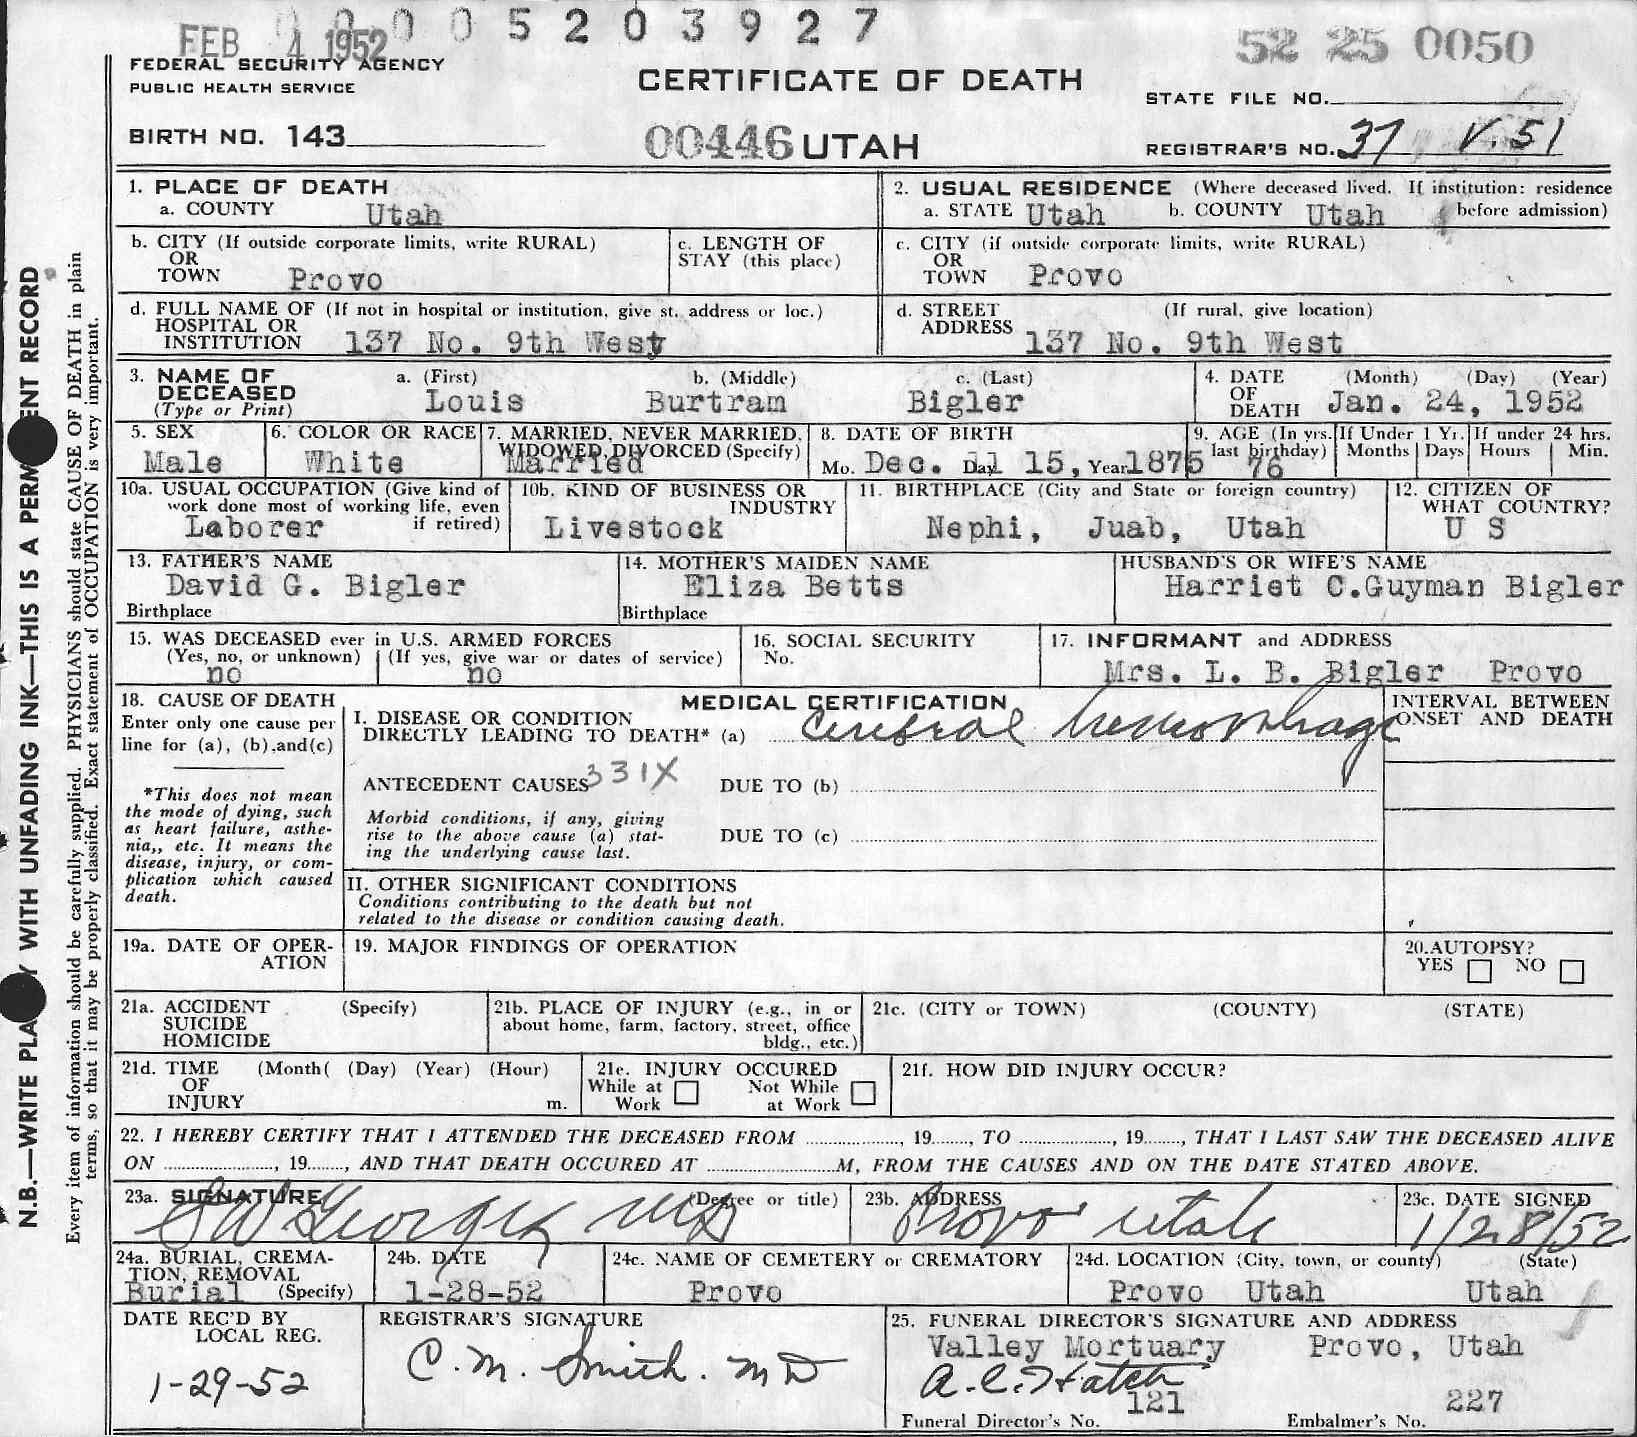 0 0 0 0 5 2 0 3 9 2 7
FEB 4 1952
52 25 0050
FEDERAL SECURITY AGENCY
PUBLIC HEALTH SERVICE
CERTIFICATE OF DEATH
STATE FILE NO.
BIRTH NO. 143
00446 UTAH
REGISTRAR'S NO. 37 V.51
1. PLACE OF DEATH
a. COUNTY Utah
2. USUAL RESIDENCE (Where deceased lived. If institution: residence before admission)
a. STATE Utah b. COUNTY Utah
b. CITY (If outside corporate limits, write RURAL)
OR
TOWN Provo
c. LENGTH OF
STAY (this place)
c. CITY (if outside corporate limits, write RURAL)
OR
TOWN Provo
d. FULL NAME OF (If not in hospital or institution, give st. address or loc.)
HOSPITAL OR
INSTITUTION 137 No. 9th West
d. STREET (If rural, give location)
ADDRESS 137 No. 9th West
3. NAME OF DECEASED
(Type or Print)
a. (First) b. (Middle) c. (Last)
Louis Burtram Bigler
4. DATE OF DEATH (Month) (Day) (Year)
Jan. 24, 1952
5. SEX
Male
6. COLOR OR RACE
White
7. MARRIED, NEVER MARRIED,
WIDOWED, DIVORCED (Specify)
Married
8. DATE OF BIRTH
Mo. Dec. Day 15, Year 1875
9. AGE (In yrs. last birthday) 76
If Under 1 Yr. Months Days
If under 24 hrs. Hours Min.
10a. USUAL OCCUPATION (Give kind of
work done most of working life, even
if retired)
Laborer
10b. KIND OF BUSINESS OR
INDUSTRY
Livestock
11. BIRTHPLACE (City and State or foreign country)
Nephi, Juab, Utah
12. CITIZEN OF
WHAT COUNTRY?
U S
13. FATHER'S NAME
David G. Bigler
Birthplace
14. MOTHER'S MAIDEN NAME
Eliza Betts
Birthplace
HUSBAND'S OR WIFE'S NAME
Harriet C.Guyman Bigler
15. WAS DECEASED ever in U.S. ARMED FORCES
(Yes, no, or unknown) (If yes, give war or dates of service)
no no
16. SOCIAL SECURITY
No.
17. INFORMANT and ADDRESS
Mrs. L. B. Bigler Provo
18. CAUSE OF DEATH
Enter only one cause per
line for (a), (b).and(c)
*This does not mean
the mode of dying, such
as heart failure, asthe-
nia,, etc. It means the
disease, injury, or com-
plication which caused
death.
MEDICAL CERTIFICATION
I. DISEASE OR CONDITION
DIRECTLY LEADING TO DEATH* (a) Cerebral hemorrhage
ANTECEDENT CAUSES 331X
DUE TO (b)
Morbid conditions, if any, giving
rise to the above cause (a) stat-
ing the underlying cause last.
DUE TO (c)
INTERVAL BETWEEN
ONSET AND DEATH
II. OTHER SIGNIFICANT CONDITIONS
Conditions contributing to the death but not
related to the disease or condition causing death.
19a. DATE OF OPER-
ATION
19. MAJOR FINDINGS OF OPERATION
20.AUTOPSY?
YES NO
21a. ACCIDENT (Specify)
SUICIDE
HOMICIDE
21b. PLACE OF INJURY (e.g., in or
about home, farm, factory, street, office
bldg., etc.)
21c. (CITY or TOWN) (COUNTY) (STATE)
21d. TIME (Month( (Day) (Year) (Hour)
OF
INJURY m.
21e. INJURY OCCURED
While at Work Not While at Work
21f. HOW DID INJURY OCCUR?
22. I HEREBY CERTIFY THAT I ATTENDED THE DECEASED FROM ............, 19......, TO ............, 19......, THAT I LAST SAW THE DECEASED ALIVE
ON ............, 19......, AND THAT DEATH OCCURED AT ............M, FROM THE CAUSES AND ON THE DATE STATED ABOVE.
23a. SIGNATURE (Degree or title)
SW Georges MD
23b. ADDRESS
Provo Utah
23c. DATE SIGNED
1/28/52
24a. BURIAL, CREMA-
TION, REMOVAL
Burial (Specify)
24b. DATE
1-28-52
24c. NAME OF CEMETERY or CREMATORY
Provo
24d. LOCATION (City, town, or county) (State)
Provo Utah Utah
DATE REC'D BY
LOCAL REG.
1-29-52
REGISTRAR'S SIGNATURE
C. M. Smith. MD
25. FUNERAL DIRECTOR'S SIGNATURE AND ADDRESS
Valley Mortuary Provo, Utah
A.C. Hatch
Funeral Director's No. 121
Embalmer's No. 227
N.B.—WRITE PLA Y WITH UNFADING INK—THIS IS A PERM ENT RECORD
Every item of information should be carefully supplied. PHYSICIANS should state CAUSE OF DEATH in plain
terms, so that it may be properly classified. Exact statement of OCCUPATION is very important.